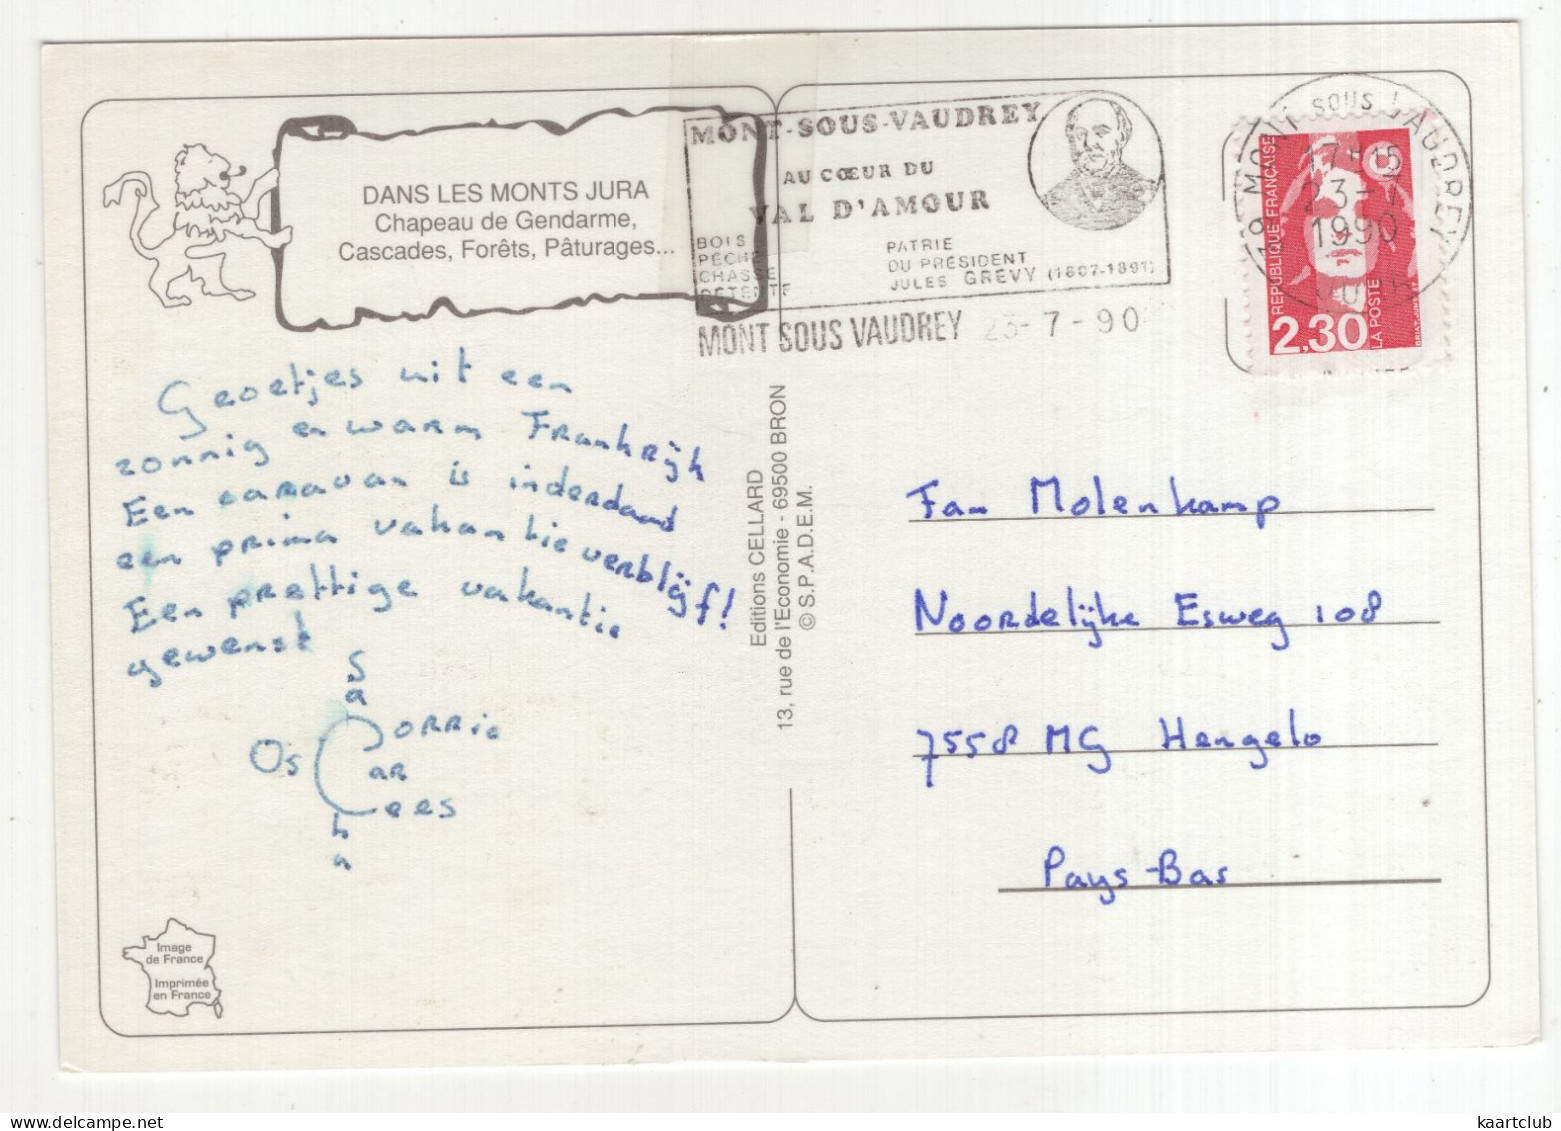 DANS LES MONTS JURA
Chapeau de Gendarme,
Cascades, Forêts, Pâturages...
MONT-SOUS-VAUDREY
AU CŒUR DU
VAL D'AMOUR
BOIS
PÊCHE
CHASSE
DÉTENTE
PATRIE
DU PRÉSIDENT
JULES GREVY (1807-1891)
MONT SOUS VAUDREY 23-7-90
MONT SOUS VAUDREY
17H15
23-7
1990
JURA
REPUBLIQUE FRANÇAISE
2,30
LA POSTE
Groetjes uit een
zonnig en warm Frankrijk
Een caravan is inderdaad
een prima vakantieverblijf!
Een prettige vakantie
gewenst
Sa
Corrie
Os Car
Cees
ha
Editions CELLARD
13, rue de l'Economie - 69500 BRON
© S.P.A.D.E.M.
Fam Molenkamp
Noordelijke Esweg 108
7558 MG Hengelo
Pays-Bas
Image
de France
Imprimée
en France
kaartclub